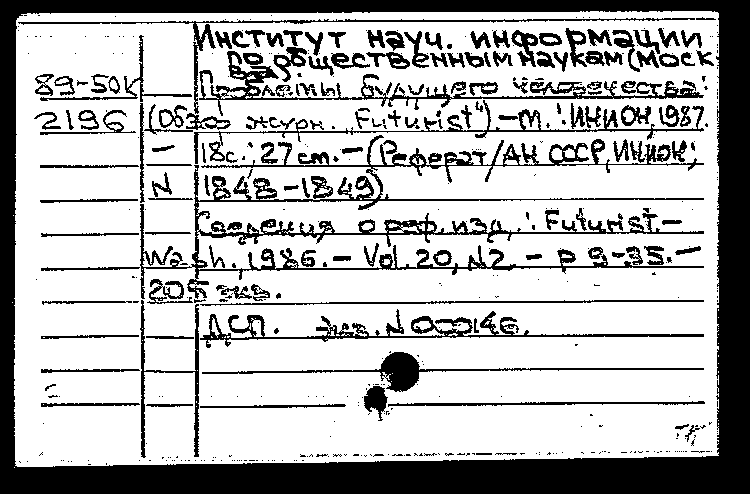 Институт науч. информации
по общественным наукам (Моск
ва).
89-50к Проблемы будущего человечества:
2196 (Обзор журн. „Futurist“). — М.: ИНИОН, 1987.
— 18с.; 27 см. — (Реферат/АН СССР, ИНИОН;
N 1848-1849).
Сведения о реф. изд.: Futurist. —
Wash., 1986. — Vol. 20, N2. — p 9-35. —
205 экз.
ДСП. Экз. N 000146.